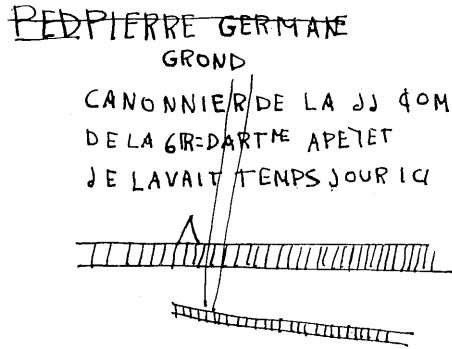 PED PIERRE GERMANE
GROND
CANONNIER DE LA JJ COM
DE LA 6IR=DARTME APETET
JE LAVAIT TEMPS JOUR ICI